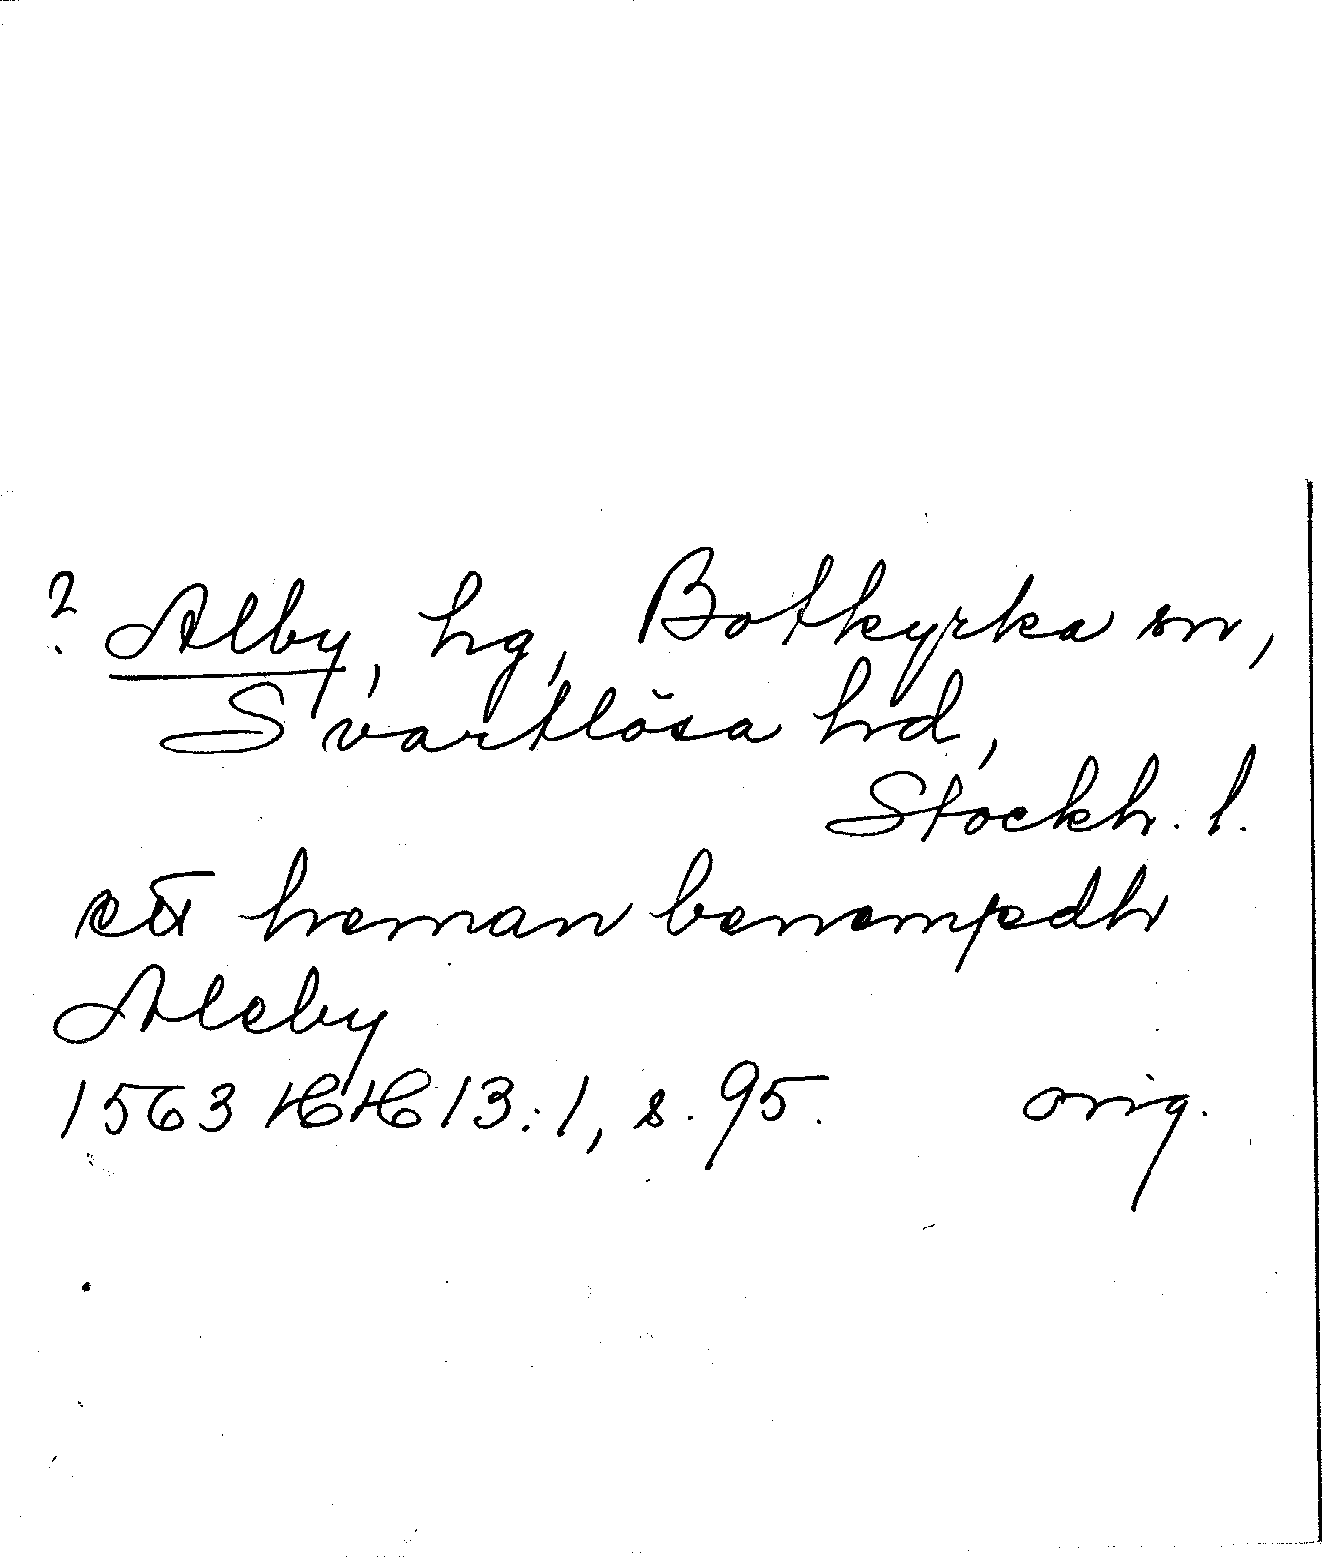 ? Alby, hg, Botkyrka sn,
Svartlösa hd,
Stockh. l.
ett heman benempdh
Aleby
1563 HH 13:1, s. 95. orig.